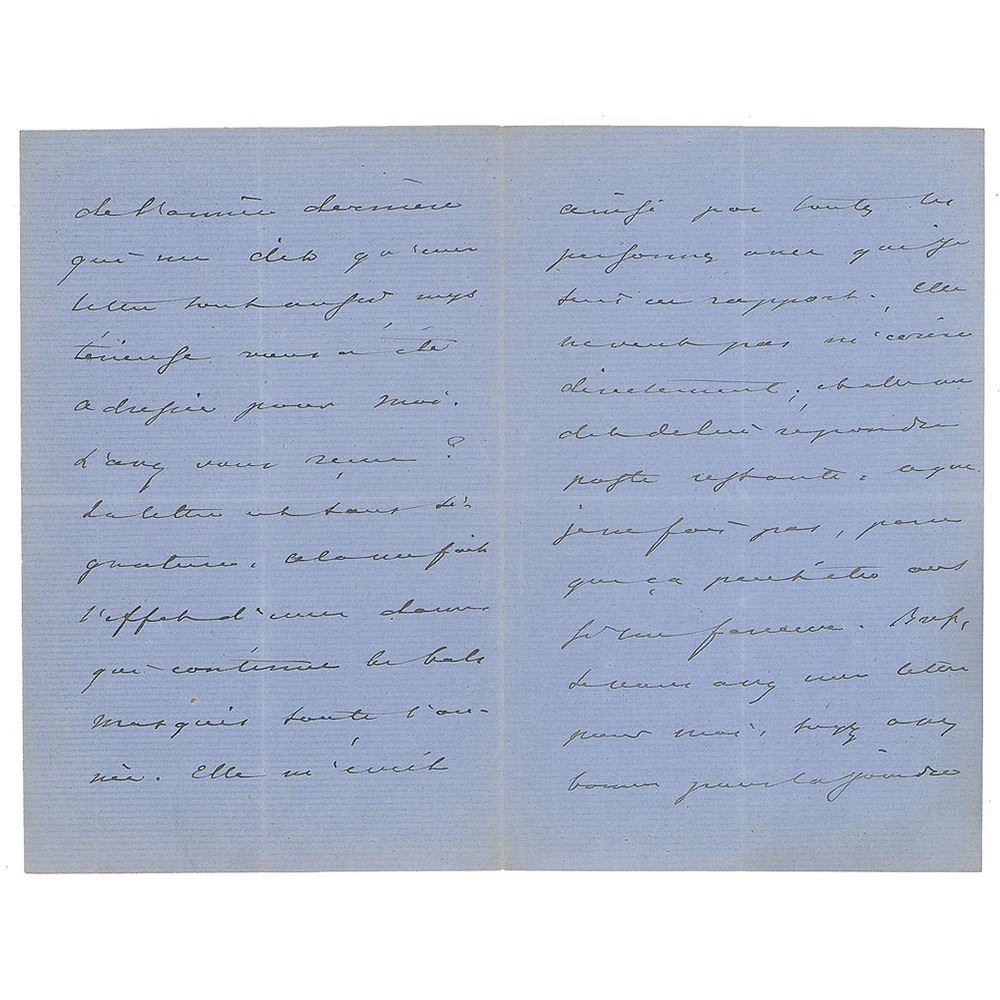 de l'année dernière
qui me dit qu'une
lettre tout aussi mys
térieuse vous a été
adressée pour moi.
L'avez vous reçue ?
La lettre est sans si-
gnature, cela me fait
l'effet d'une dame
qui continue les bals
masqués toute l'an-
née. Elle m'écrit
ainsi par toutes les
personnes avec qui je
suis en rapport. Elle
ne veut pas m'écrire
directement ; et elle me
dit de lui répondre
poste restante, ce que
je ne fais pas, parce
que ça peut être aus
si une farceuse. Bref,
si vous avez une lettre
pour moi, soyez assez
bonne pour la joindre